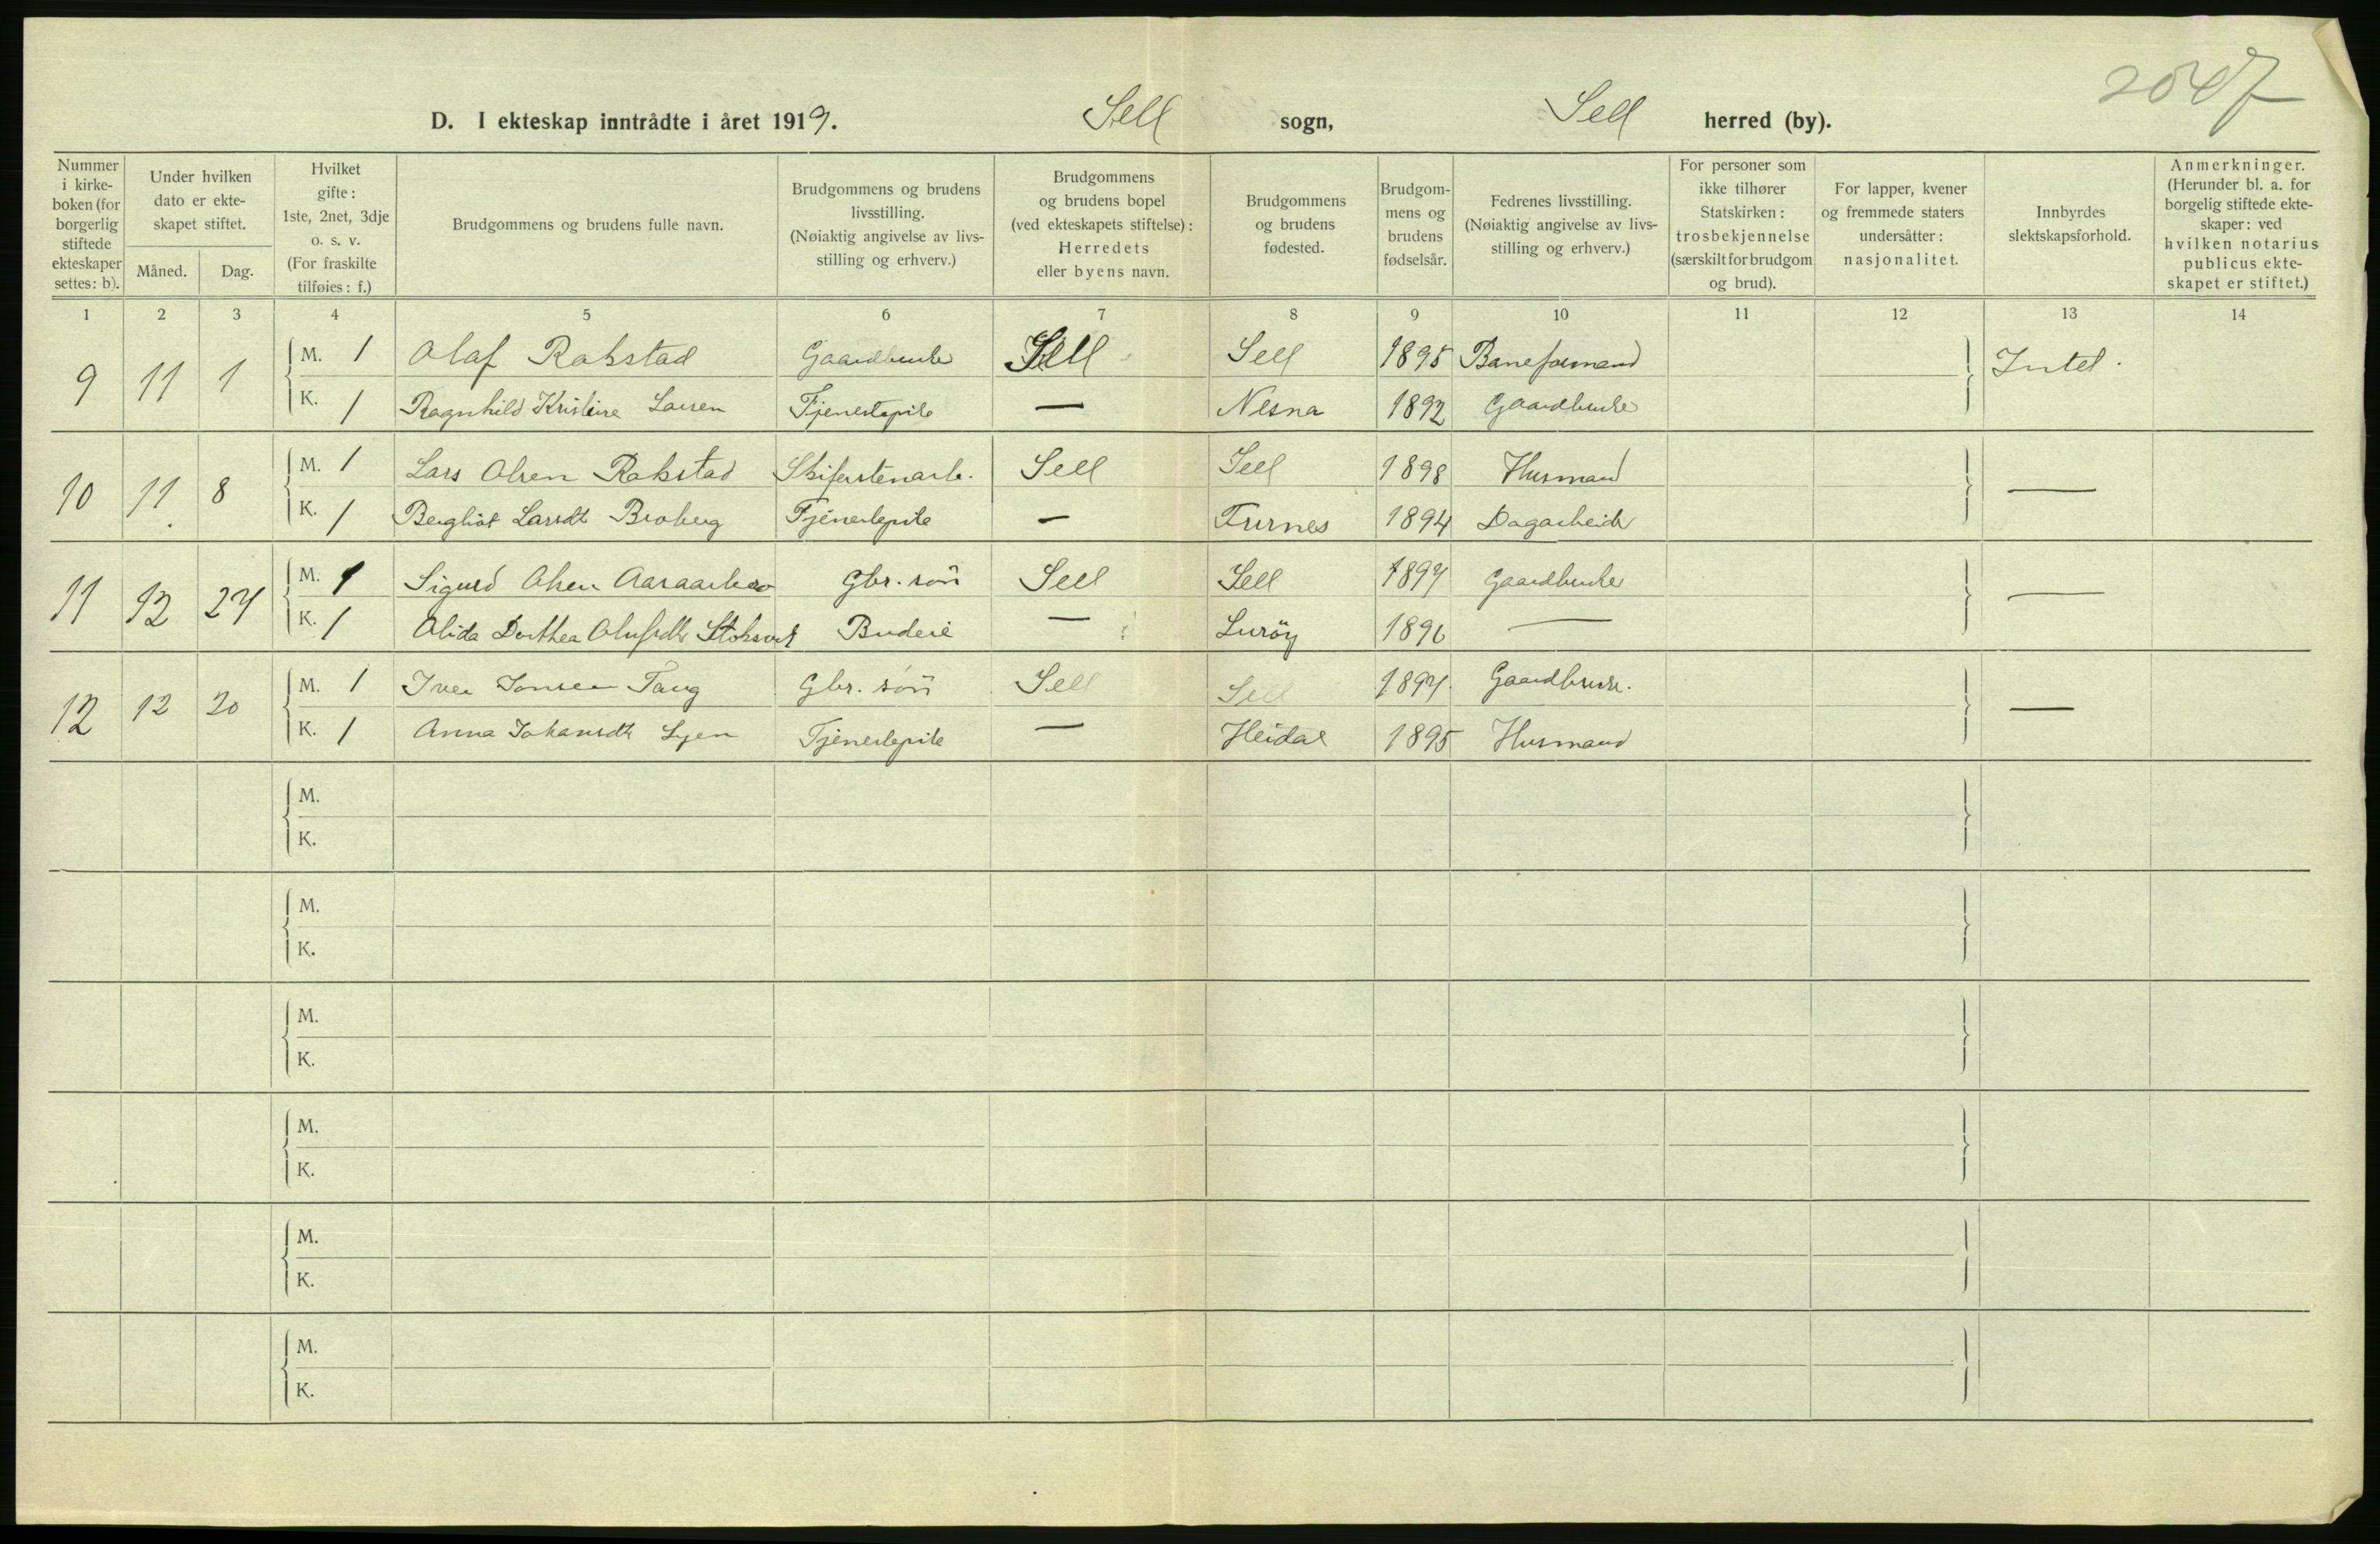 2047
D. I ekteskap inntrådte i året 1919. Sell sogn, Sell herred (by).
Nummer i kirke- boken (for borgerlig stiftede ekteskaper settes: b).
Under hvilken dato er ekte- skapet stiftet.
Måned. Dag.
Hvilket gifte: 1ste, 2net, 3dje o. s. v. (For fraskilte tilføies: f.)
Brudgommens og brudens fulle navn.
Brudgommens og brudens livsstilling. (Nøiaktig angivelse av livs- stilling og erhverv.)
Brudgommens og brudens bopel (ved ekteskapets stiftelse): Herredets eller byens navn.
Brudgommens og brudens fødested.
Brudgom- mens og brudens fødselsår.
Fedrenes livsstilling. (Nøiaktig angivelse av livs- stilling og erhverv.)
For personer som ikke tilhører Statskirken: trosbekjennelse (særskilt for brudgom og brud).
For lapper, kvener og fremmede staters undersåtter: nasjonalitet.
Innbyrdes slektskapsforhold.
Anmerkninger. (Herunder bl. a. for borgelig stiftede ekte- skaper: ved hvilken notarius publicus ekte- skapet er stiftet.)
1 2 3 4 5 6 7 8 9 10 11 12 13 14
9 11 1 M. 1 Olaf Rakstad Gaardbruker Sell Sell 1895 Baneformand Intet.
K. 1 Ragnhild Kristine Larsen Tjenestepike — Nesna 1892 Gaardbruker
10 11 8 M. 1 Lars Olsen Rakstad Skiferstenarb. Sell Sell 1898 Husmand —
K. 1 Bergliot Larsdt Broberg Tjenestepike — Furnes 1894 Dagarbeider
11 12 27 M. 1 Sigurd Olsen Gbr. søn Sell Sell 1897 Gaardbruker —
K. 1 Alida Dorthea Olufsdtr Budeie — Lurøy 1896 —
12 12 20 M. 1 Iver Jonsen Taug Gbr. søn Sell Sell 1897. Gaardbruk. —
K. 1 Anna Johansdtr Lyen Tjenestepike — Heidal 1895 Husmand
M.
K.
M.
K.
M.
K.
M.
K.
M.
K.
M.
K.